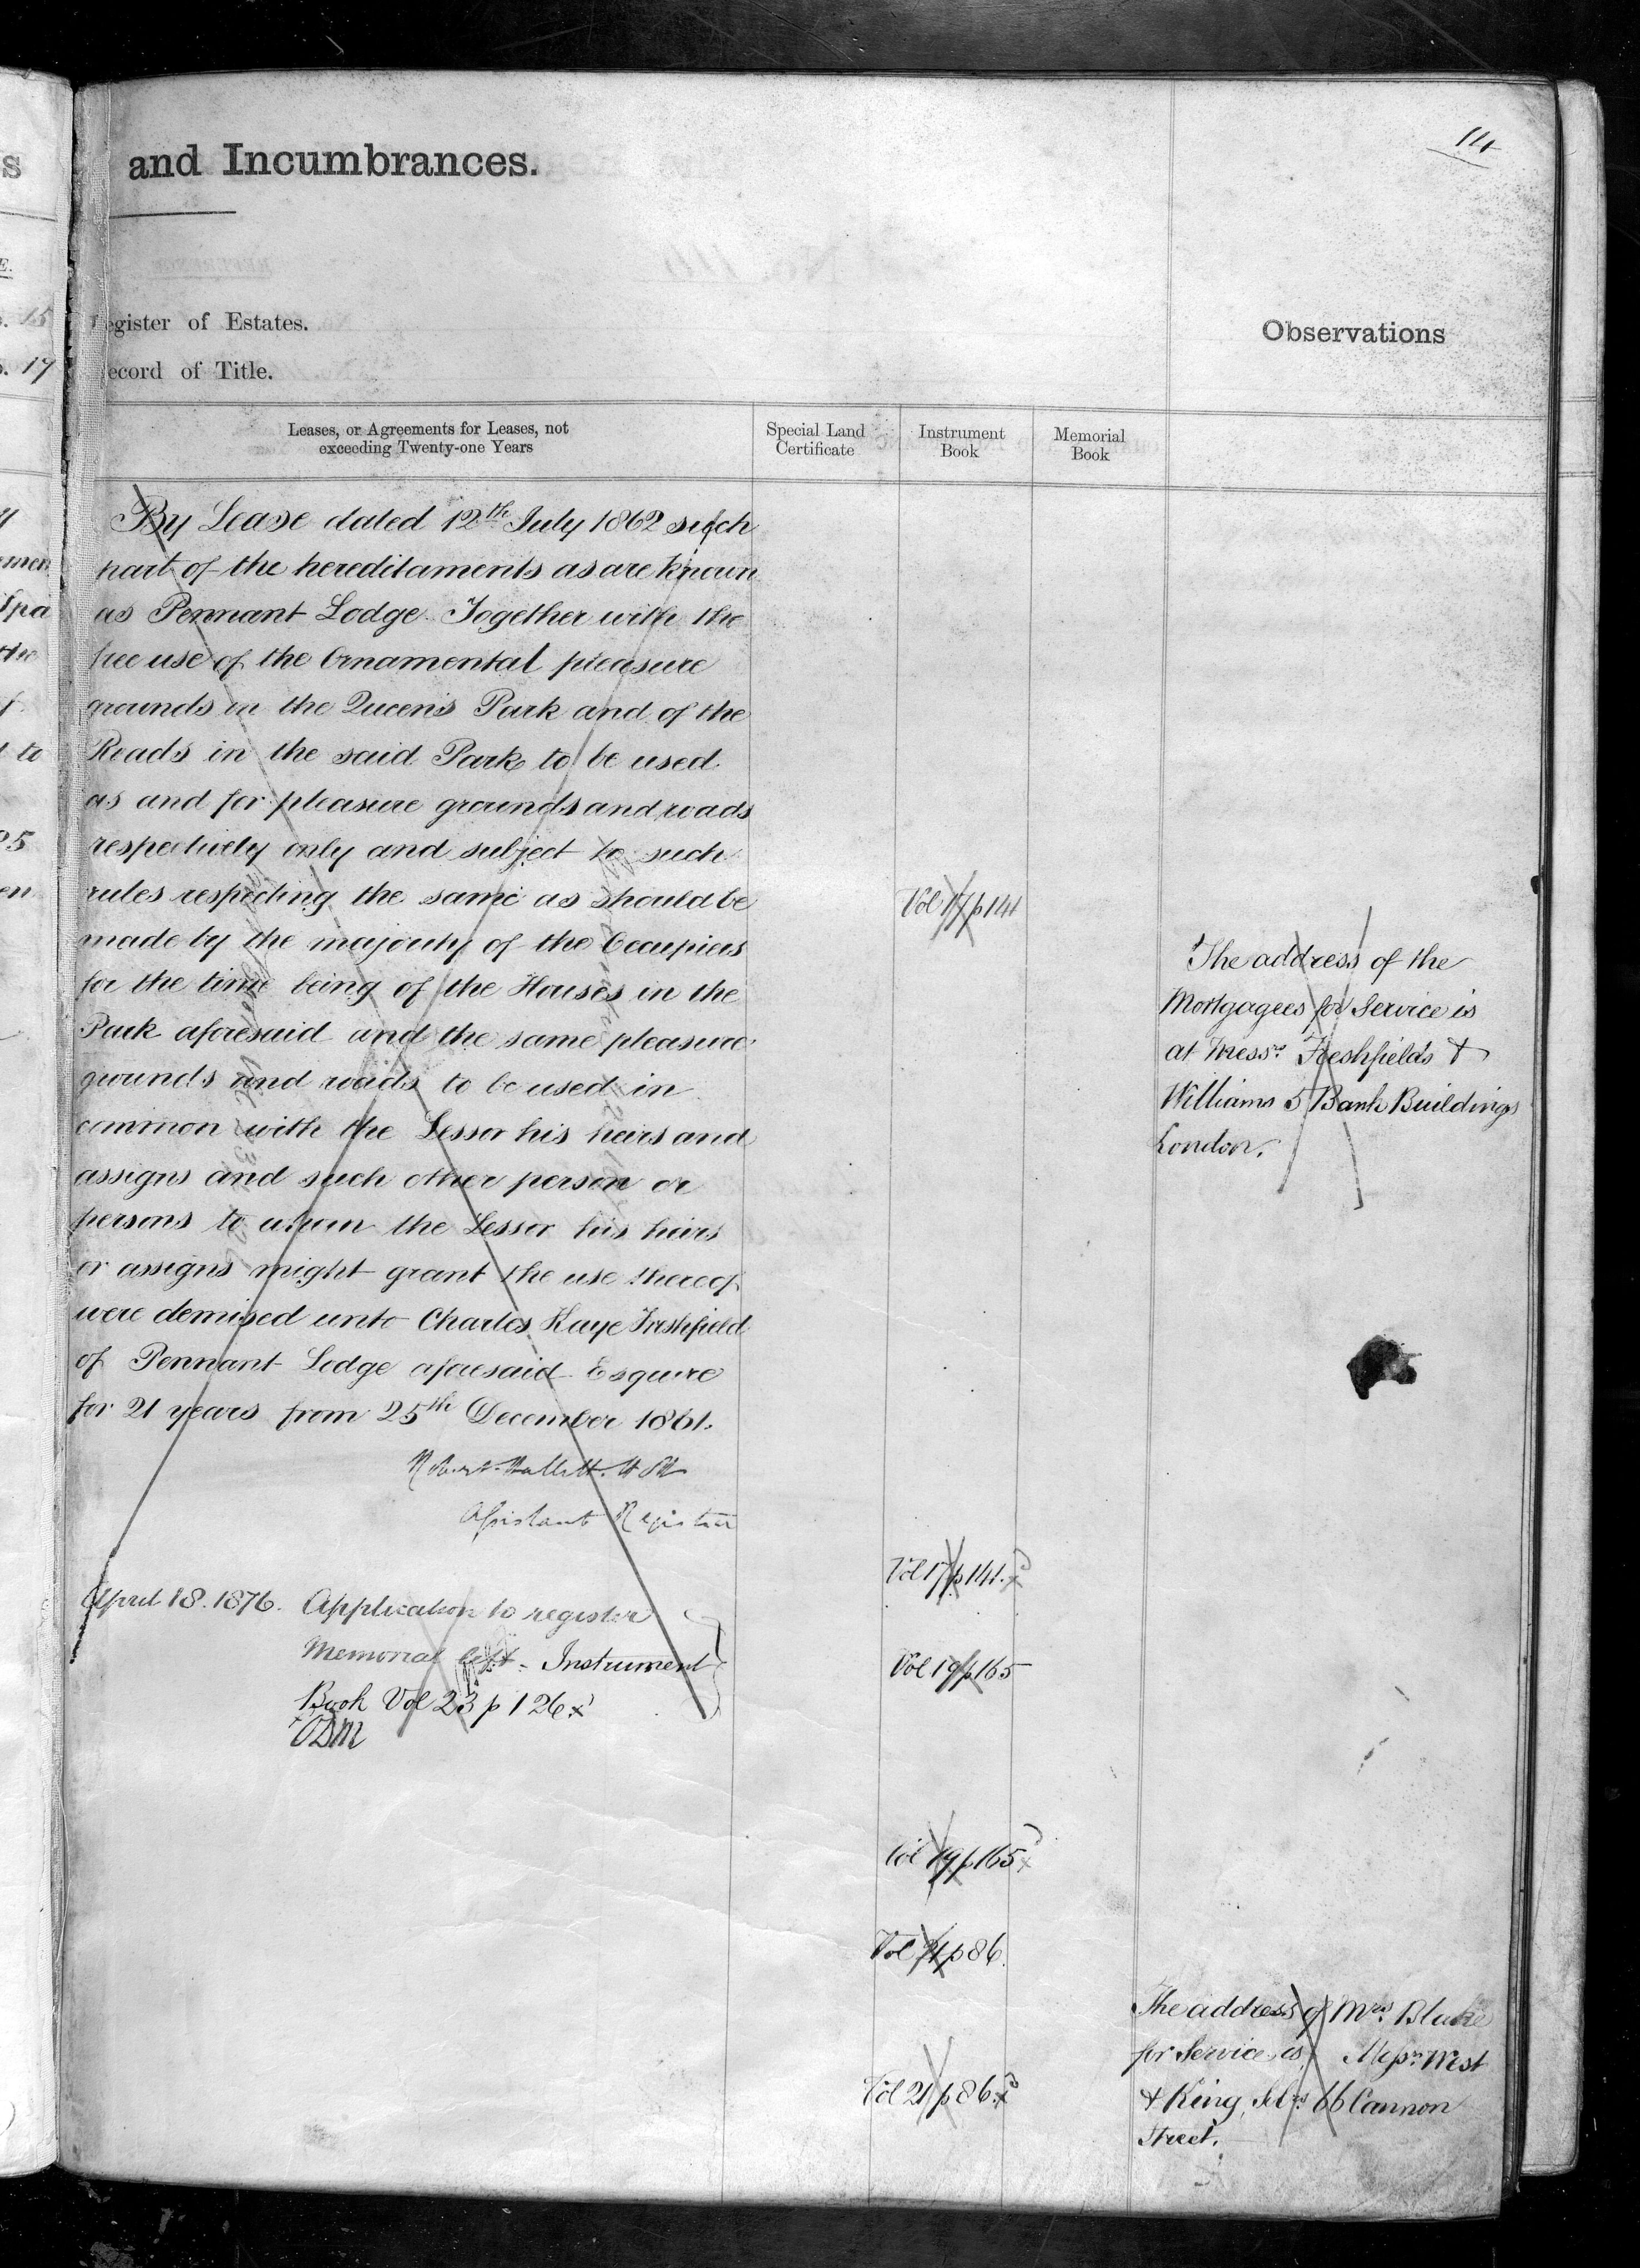 14
and Incumbrances.
Register of Estates.
Record of Title.
Observations
Leases, or Agreements for Leases, not
exceeding Twenty-one Years
Special Land
Certificate
Instrument
Book
Memorial
Book
By Lease dated 12th July 1862 such
part of the hereditaments as are known
as Pennant Lodge Together with the
free use of the Ornamental pleasure
grounds in the Queen's Park and of the
Roads in the said Park to be used
as and for pleasure grounds and roads
respectively only and subject to such
rules respecting the same as should be
made by the majority of the Occupiers
for the time being of the Houses in the
Park aforesaid and the same pleasure
grounds and roads to be used in
common with the Lessor his heirs and
assigns and such other person or
persons to whom the Lessor his heirs
or assigns might grant the use thereof
were demised unto Charles Kaye Freshfield
of Pennant Lodge aforesaid Esquire
for 21 years from 25th December 1861.
Robert Hallett Holt
Assistant Registrar
April 18. 1876. Application to register
Memorial Instrument
Book Vol 23 p 126
Vol 17 p 141
Vol 17 p 141.
Vol 19 p 165
Vol 19 p 165
Vol 21 p 86.
Vol 21 p 86.
The address of the
Mortgagees for Service is
at Messrs. Freshfields &
Williams 5 Bank Buildings
London.
The address of Mrs. Blake
for Service is Messrs West
& King, Solrs. 66 Cannon
Street.